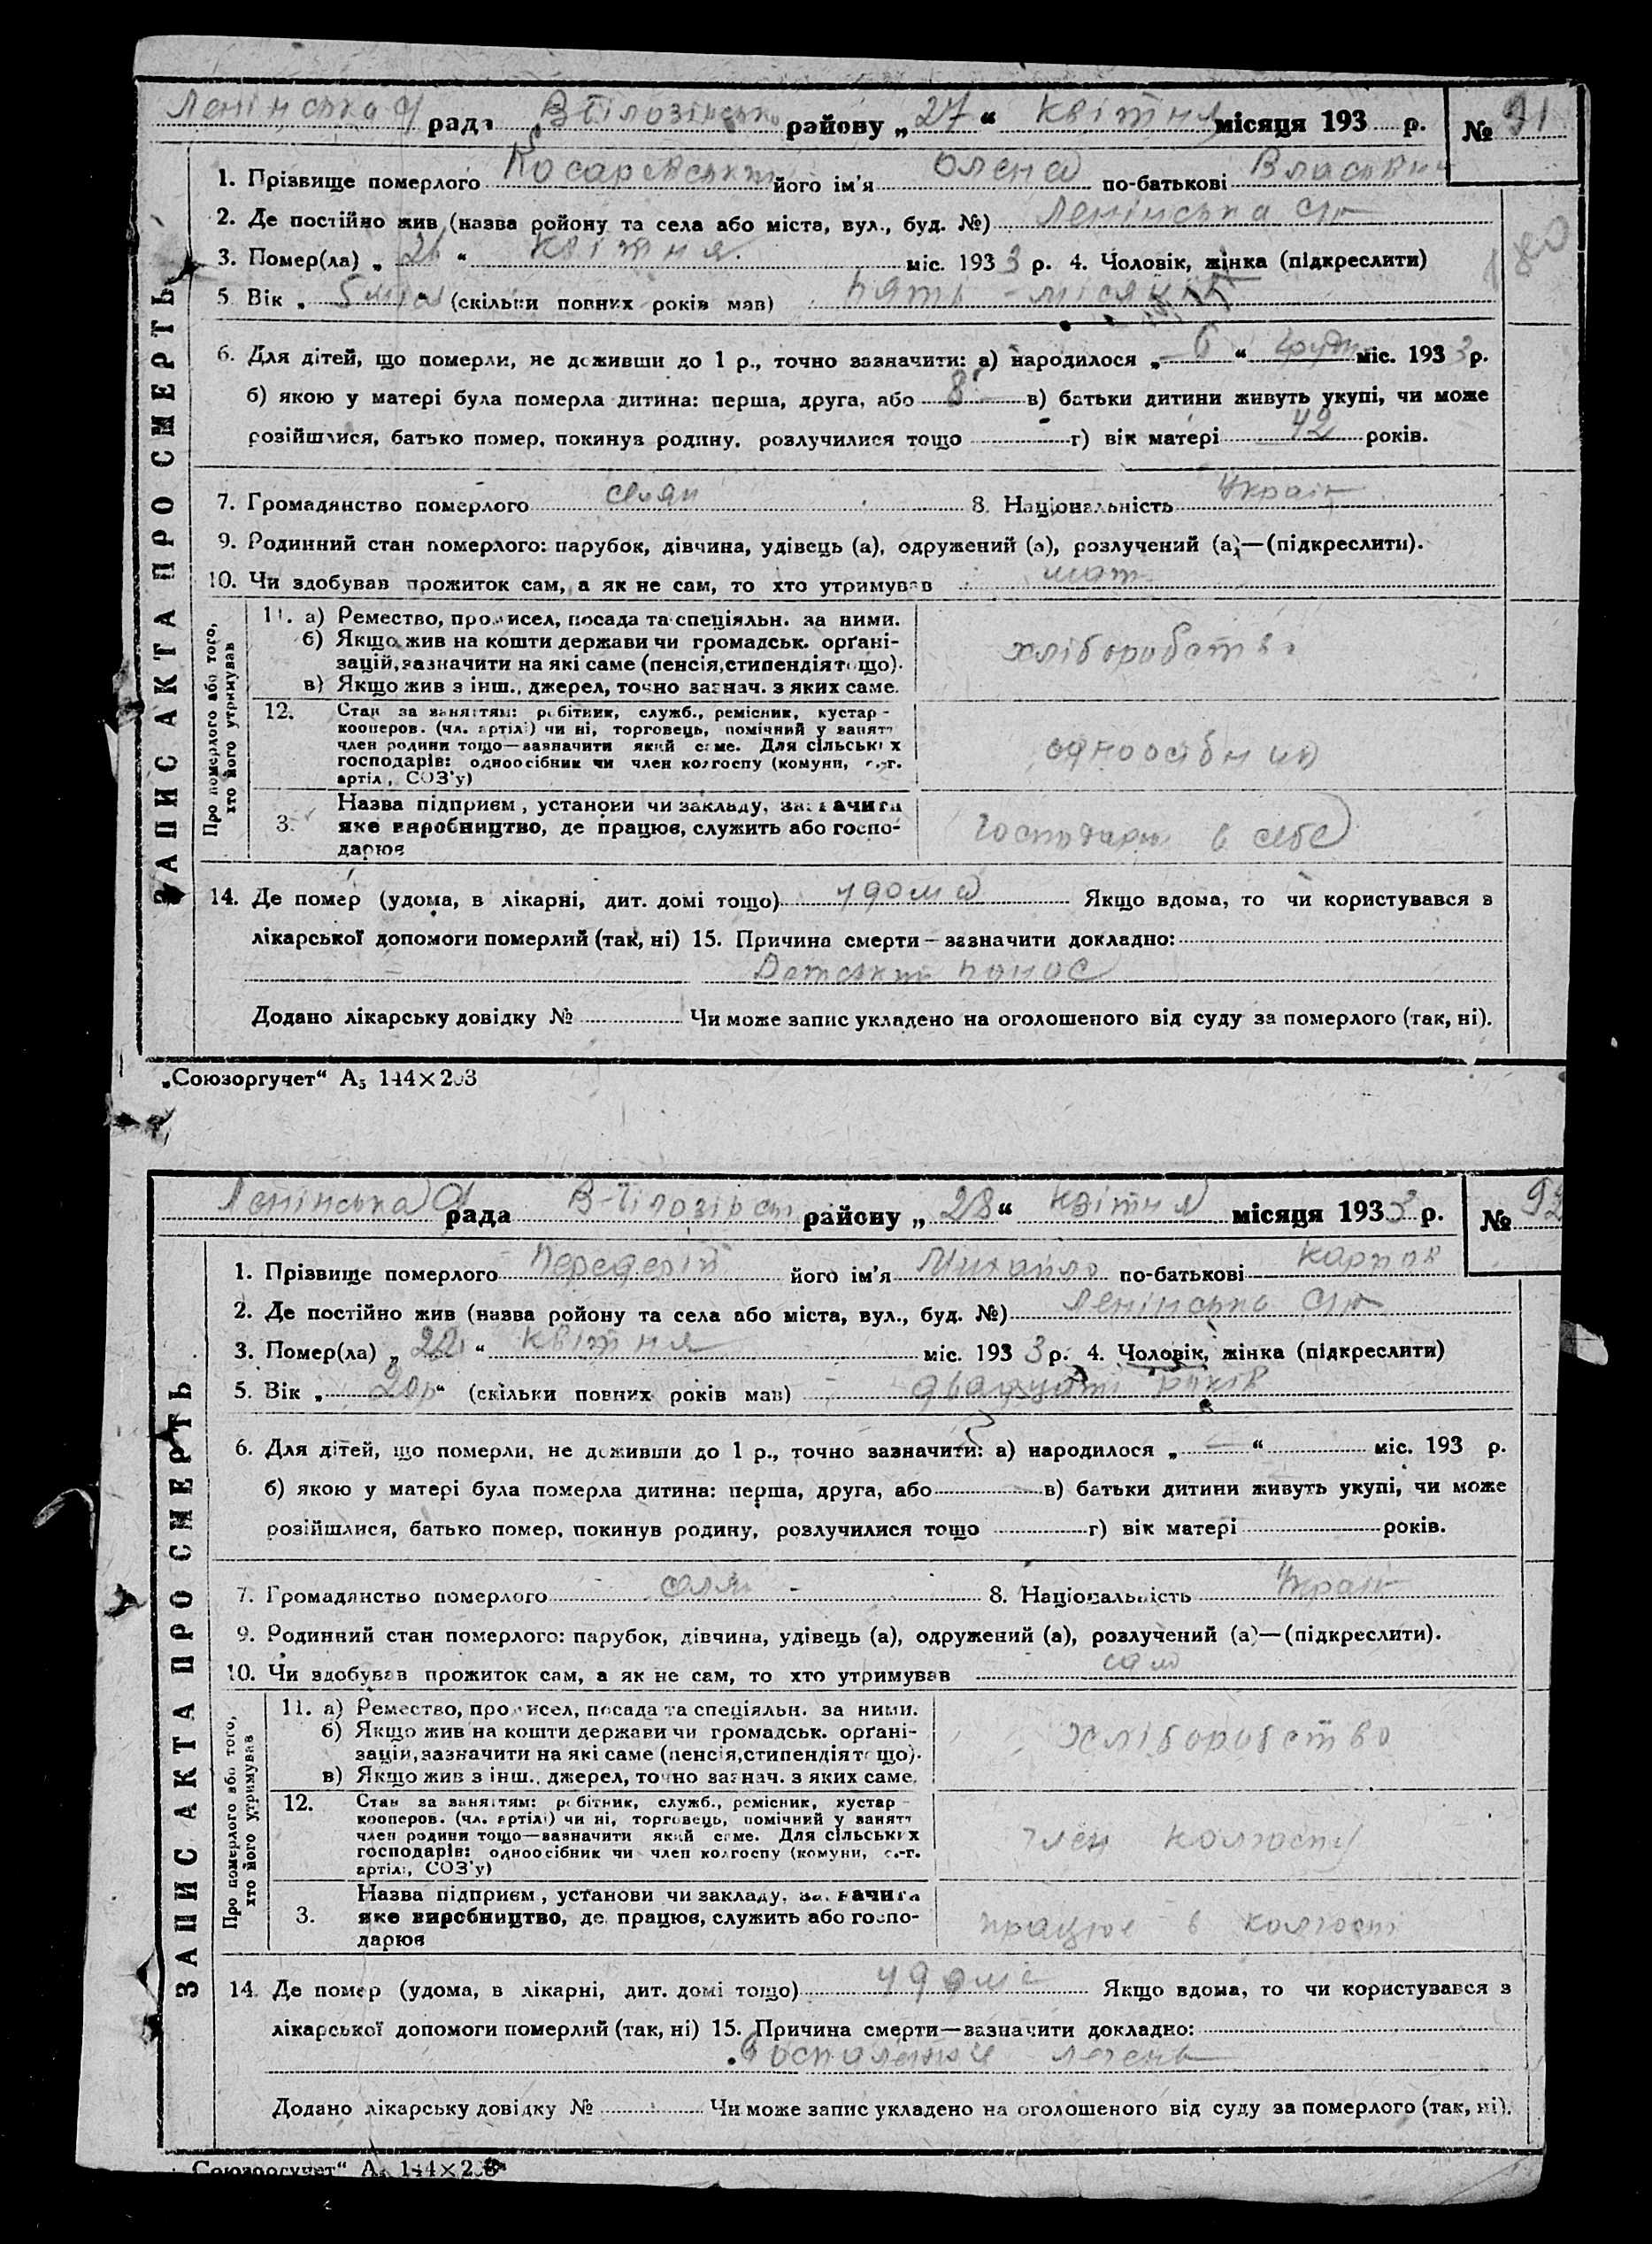 Ленінська рада В Білозірсько району „27“ квітня місяця 193 р. № 91
1. Прізвище померлого його ім'я Олена по-батькові
2. Де постійно жив (назва ройону та села або міста, вул., буд. №) Ленінська
3. Помер(ла) „26“ квітня міс. 1933 р. 4. Чоловік, жінка (підкреслити)
5 Вік „5 міс“ (скільки повних років мав) пять місяців
6. Для дітей, що померли, не доживши до 1 р., точно зазначити: а) народилося „6“ груд міс. 1933 р.
б) якою у матері була померла дитина: перша, друга, або 8 в) батьки дитини живуть укупі, чи може
розійшлися, батько помер, покинув родину, розлучилися тощо г) вік матері 42 років.
7. Громадянство померлого селян 8. Національність Україн
9. Родинний стан померлого: парубок, дівчина, удівець (а), одружений (а), розлучений (а)—(підкреслити).
10. Чи здобував прожиток сам, а як не сам, то хто утримував мат
Про померлого або того, хто його утримував
11. а) Ремество, промисел, посада та спеціяльн. за ними.
б) Якщо жив на кошти держави чи громадськ. орґані-
зацій, зазначити на які саме (пенсія, стипендія тощо).
в) Якщо жив з інш., джерел, точно зазнач. з яких саме.
хліборобство
12. Стан за заняттям: робітник, служб., ремісник, кустар-
кооперов. (чл. артілі) чи ні, торговець, помічний у занятт
член родини тощо—зазначити який саме. Для сільських
господарів: одноосібник чи член колгоспу (комуни, с.-г.
артіл, СОЗ'у)
одноосібник
3. Назва підприєм, установи чи закладу, зазначити
яке виробництво, де працює, служить або госпо-
дарює
господарює в себе
14. Де помер (удома, в лікарні, дит. домі тощо) удома Якщо вдома, то чи користувався з
лікарської допомоги померлий (так, ні) 15. Причина смерти—зазначити докладно:
понос
Додано лікарську довідку № Чи може запис укладено на оголошеного від суду за померлого (так, ні).
ЗАПИС АКТА ПРО СМЕРТЬ
„Союзоргучет“ А5 144×203
Ленінська рада В-Білозірськ району „28“ квітня місяця 1933 р. № 92
1. Прізвище померлого Передерій його ім'я Михайло по-батькові Карпов
2. Де постійно жив (назва ройону та села або міста, вул., буд. №) Ленінська
3. Помер(ла) „22“ квітня міс. 1933 р. 4. Чоловік, жінка (підкреслити)
5. Вік „20р“ (скільки повних років мав) двадцять років
6. Для дітей, що померли, не доживши до 1 р., точно зазначити: а) народилося „ “ міс. 193 р.
б) якою у матері була померла дитина: перша, друга, або в) батьки дитини живуть укупі, чи може
розійшлися, батько помер, покинув родину, розлучилися тощо г) вік матері років.
7. Громадянство померлого селян 8. Національність Україн
9. Родинний стан померлого: парубок, дівчина, удівець (а), одружений (а), розлучений (а)—(підкреслити).
10. Чи здобував прожиток сам, а як не сам, то хто утримував сам
Про померлого або того, хто його утримував
11. а) Ремество, промисел, посада та спеціяльн. за ними.
б) Якщо жив на кошти держави чи громадськ. орґані-
зацій, зазначити на які саме (пенсія, стипендія тощо).
в) Якщо жив з інш., джерел, точно зазнач. з яких саме.
хліборобство
12. Стан за заняттям: робітник, служб., ремісник, кустар-
кооперов. (чл. артілі) чи ні, торговець, помічний у занятт
член родини тощо—зазначити який саме. Для сільських
господарів: одноосібник чи член колгоспу (комуни, с.-г.
артілі, СОЗ'у)
член колгоспу
3. Назва підприєм, установи чи закладу, зазначити
яке виробництво, де працює, служить або госпо-
дарює
працює в колгоспі
14. Де помер (удома, в лікарні, дит. домі тощо) удома Якщо вдома, то чи користувався з
лікарської допомоги померлий (так, ні) 15. Причина смерти—зазначити докладно:
воспаление легень
Додано лікарську довідку № Чи може запис укладено на оголошеного від суду за померлого (так, ні).
ЗАПИС АКТА ПРО СМЕРТЬ
Союзоргучет“ А5 144×203